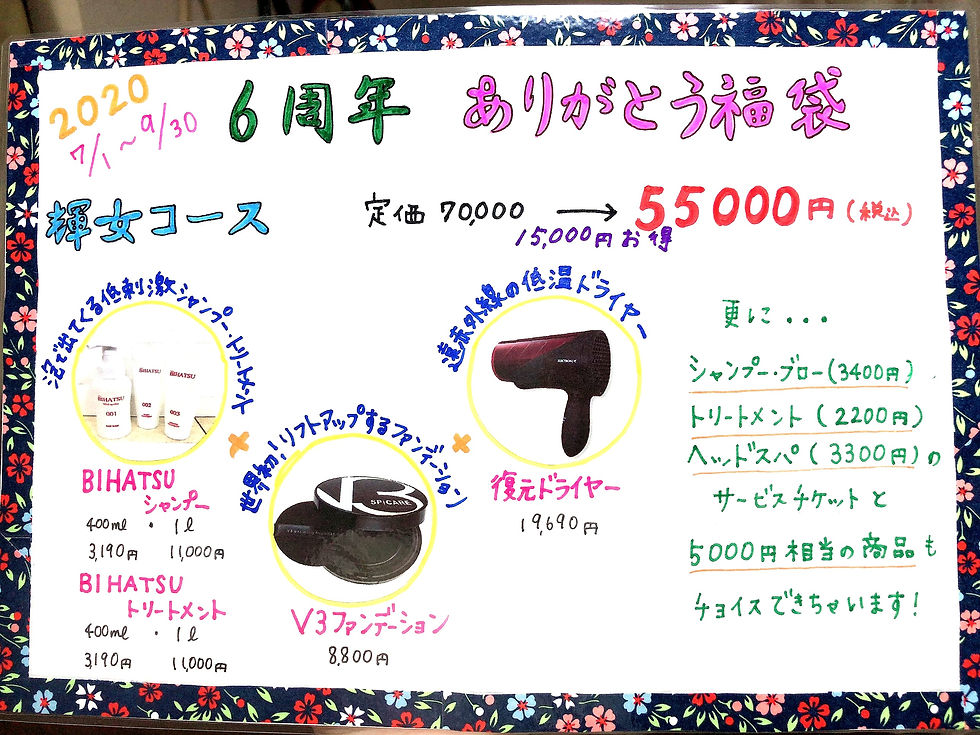 2020
7/1～9/30
6周年 ありがとう福袋
輝女コース
定価 70,000 → 55000円(税込)
15,000円お得
泡で出てくる低刺激シャンプー・トリートメント
BIHATSU
001
BIHATSU
002
BIHATSU
003
BIHATSU
シャンプー
400ml ・ 1l
3,190円 11,000円
BIHATSU
トリートメント
400ml ・ 1l
3190円 11,000円
世界初!リフトアップするファンデーション
V3
SPICARE
V3ファンデーション
8,800円
遠赤外線の低温ドライヤー
復元ドライヤー
19,690円
更に・・・
シャンプー・ブロー(3400円)
トリートメント(2200円)
ヘッドスパ(3300円)の
サービスチケットと
5000円相当の商品も
チョイスできちゃいます!